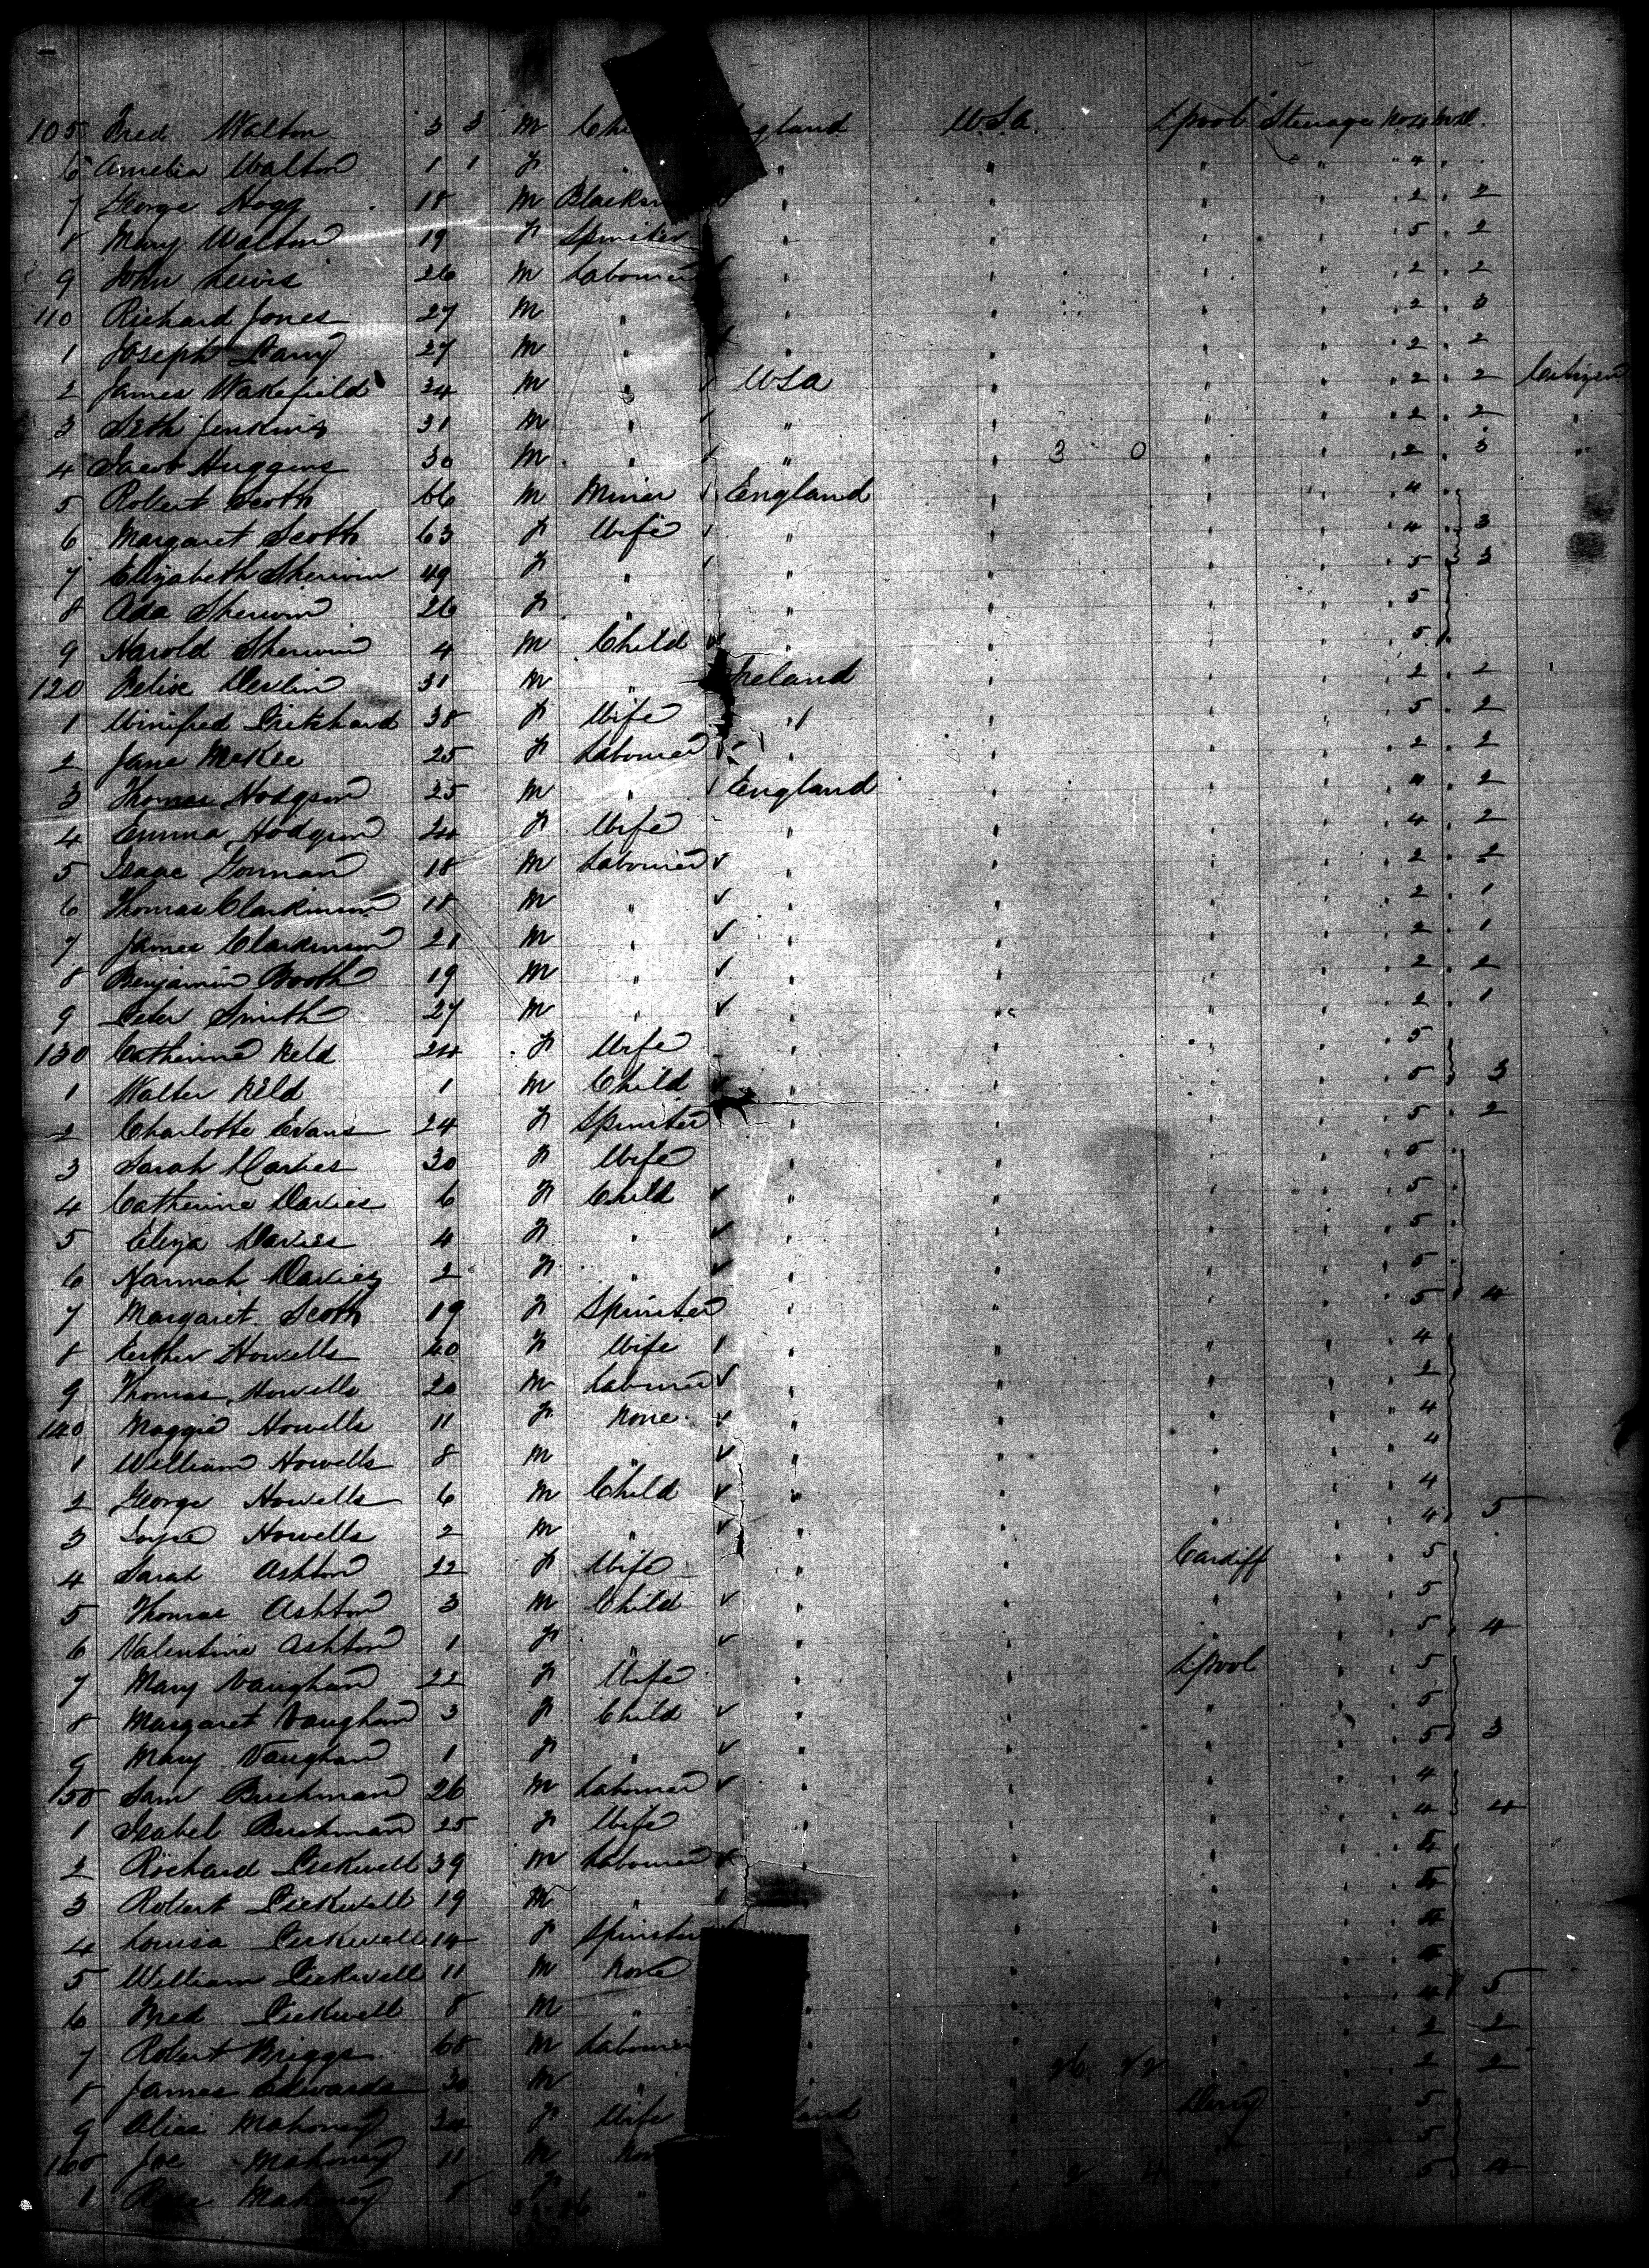 105 Fred Walton 3 3 M Chi England U.S.A. L'pool Steerage
6 Amelia Walton 1 1 F " " " " " 4
7 George Hogg 18 M Blacksm " " " " 2 2
8 Mary Walton 19 F Spinster " " " " 5 2
9 John Lewis 26 M Labourer " " " " 2 2
110 Richard Jones 27 M " " " " " 2 3
1 Joseph 27 M " " " " " 2 2
2 James Wakefield 34 M " USA " " " 2 2 Citizen
3 Seth Jenkins 31 M " " " " " 2 2 "
4 Jacob Huggins 30 M " " " 3 0 " " 2 3 "
5 Robert Scott 66 M Miner England " " " 4
6 Margaret Scott 63 F Wife " " " " 4 3
7 Elizabeth Sherwin 49 F " " " " " 5 3
8 Ada Sherwin 26 F " " " " " 5
9 Harold Sherwin 4 M Child " " " " 5
120 Felix Devlin 31 M " Ireland " " " 2 2
1 Winifred Pritchard 38 F Wife " " " " 5 2
2 Jane McKee 25 F Labourer " " " " 2 2
3 Thomas Hodgson 25 M " England " " " 4 2
4 Emma Hodgson 24 F Wife " " " " 4 2
5 Isaac Gorman 18 M Labourer " " " " 2 2
6 Thomas Clarkinson 18 M " " " " " 2 1
7 James Clarkinson 21 M " " " " " 2 1
8 Benjamin Booth 19 M " " " " " 2 2
9 Peter Smith 27 M " " " " " 2 1
130 Catherine Reld 24 F Wife " " " " 5
1 Walter Reld 1 M Child " " " " 5 3
2 Charlotte Evans 24 F Spinster " " " " 5 2
3 Sarah Davies 30 F Wife " " " " 5
4 Catherine Davies 6 F Child " " " " 5
5 Eliza Davies 4 F " " " " " 5
6 Hannah Davies 2 F " " " " " 5
7 Margaret Scott 19 F Spinster " " " " 5 4
8 Esther Howells 40 F Wife " " " " 4
9 Thomas Howells 20 M Labourer " " " " 2
140 Maggie Howells 11 F None " " " " 4
1 William Howells 8 M " " " " " 4
2 George Howells 6 M Child " " " " 4
3 Howells 2 M " " " " " 4 5
4 Sarah Ashton 22 F Wife " " Cardiff " 5
5 Thomas Ashton 3 M Child " " " " 5
6 Valentine Ashton 1 F " " " " " 5 4
7 Mary Vaughan 22 F Wife " " L'pool " 5
8 Margaret Vaughan 3 F Child " " " " 5
9 Mary Vaughan 1 F " " " " " 5 3
150 Sam Bushman 26 M Labourer " " " " 4
1 Isabel Bushman 25 F Wife " " " " 4 4
2 Richard Pickwell 39 M Labourer " " " " 4
3 Robert Pickwell 19 M " " " " 4
4 Louisa Pickwell 14 F Spinster " " " 4
5 William Pickwell 11 M None " " " " 4
6 Fred Pickwell 8 M " " " " " 4 5
7 Robert Briggs 68 M Labourer " " " " 2 2
8 James Edwards 30 M " " " " " 2 2
9 Alice Mahoney 34 F Wife land " Derry " 5
160 Joe Mahoney 11 M Non " " " 5
1 Rose Mahoney 8 F " " 5 4